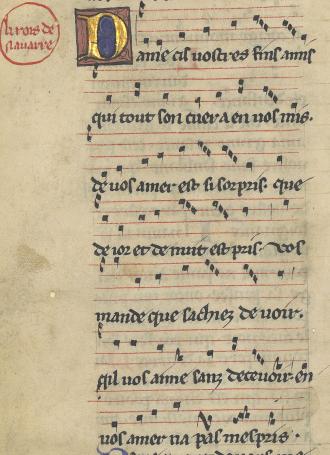 li rois de
nauarre
Dame cis uostres fins amis
qui tout son cuer a en uos mis.
de uos amer est si sorpris. que
de ior et de nuit est pris. vos
mande que sachiez de uoir.
qil uos aime sanz deceuoir. en
uos amer na pas mespris.